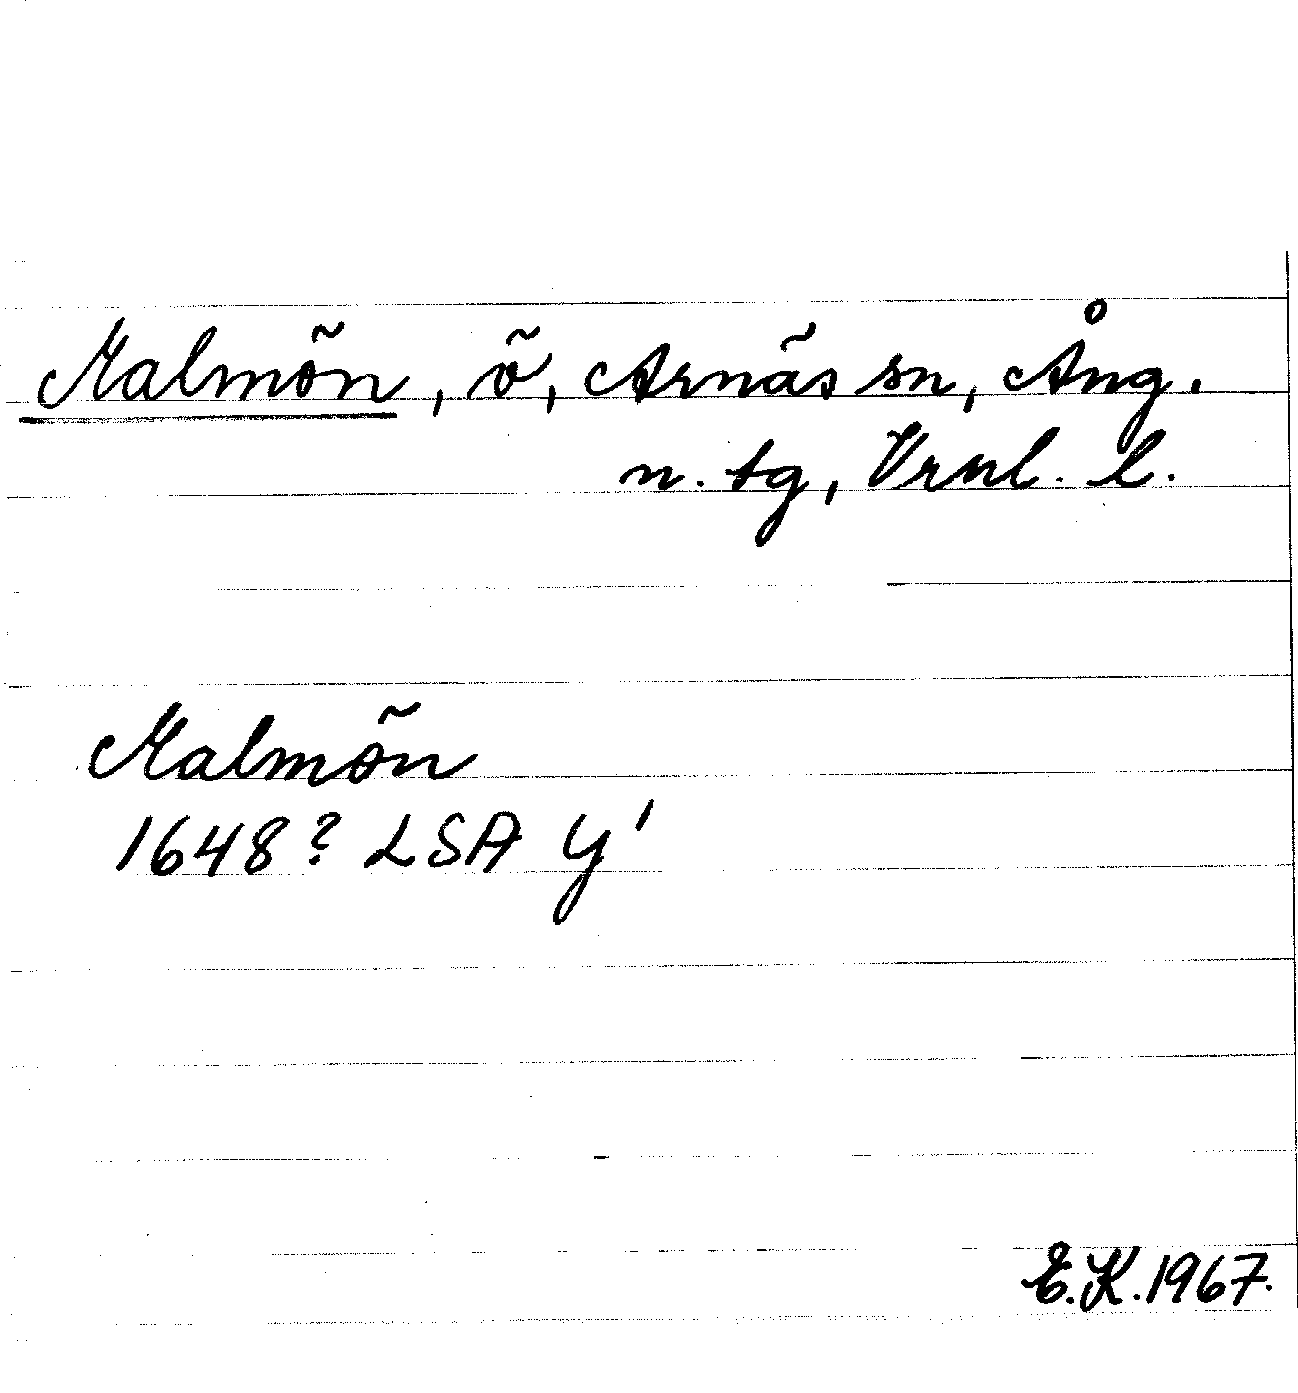 Malmön, ö, Arnäs sn, Ång.
n. tg, Vrnl. l.
Malmön
1648? LSA Y¹
E.K.1967.